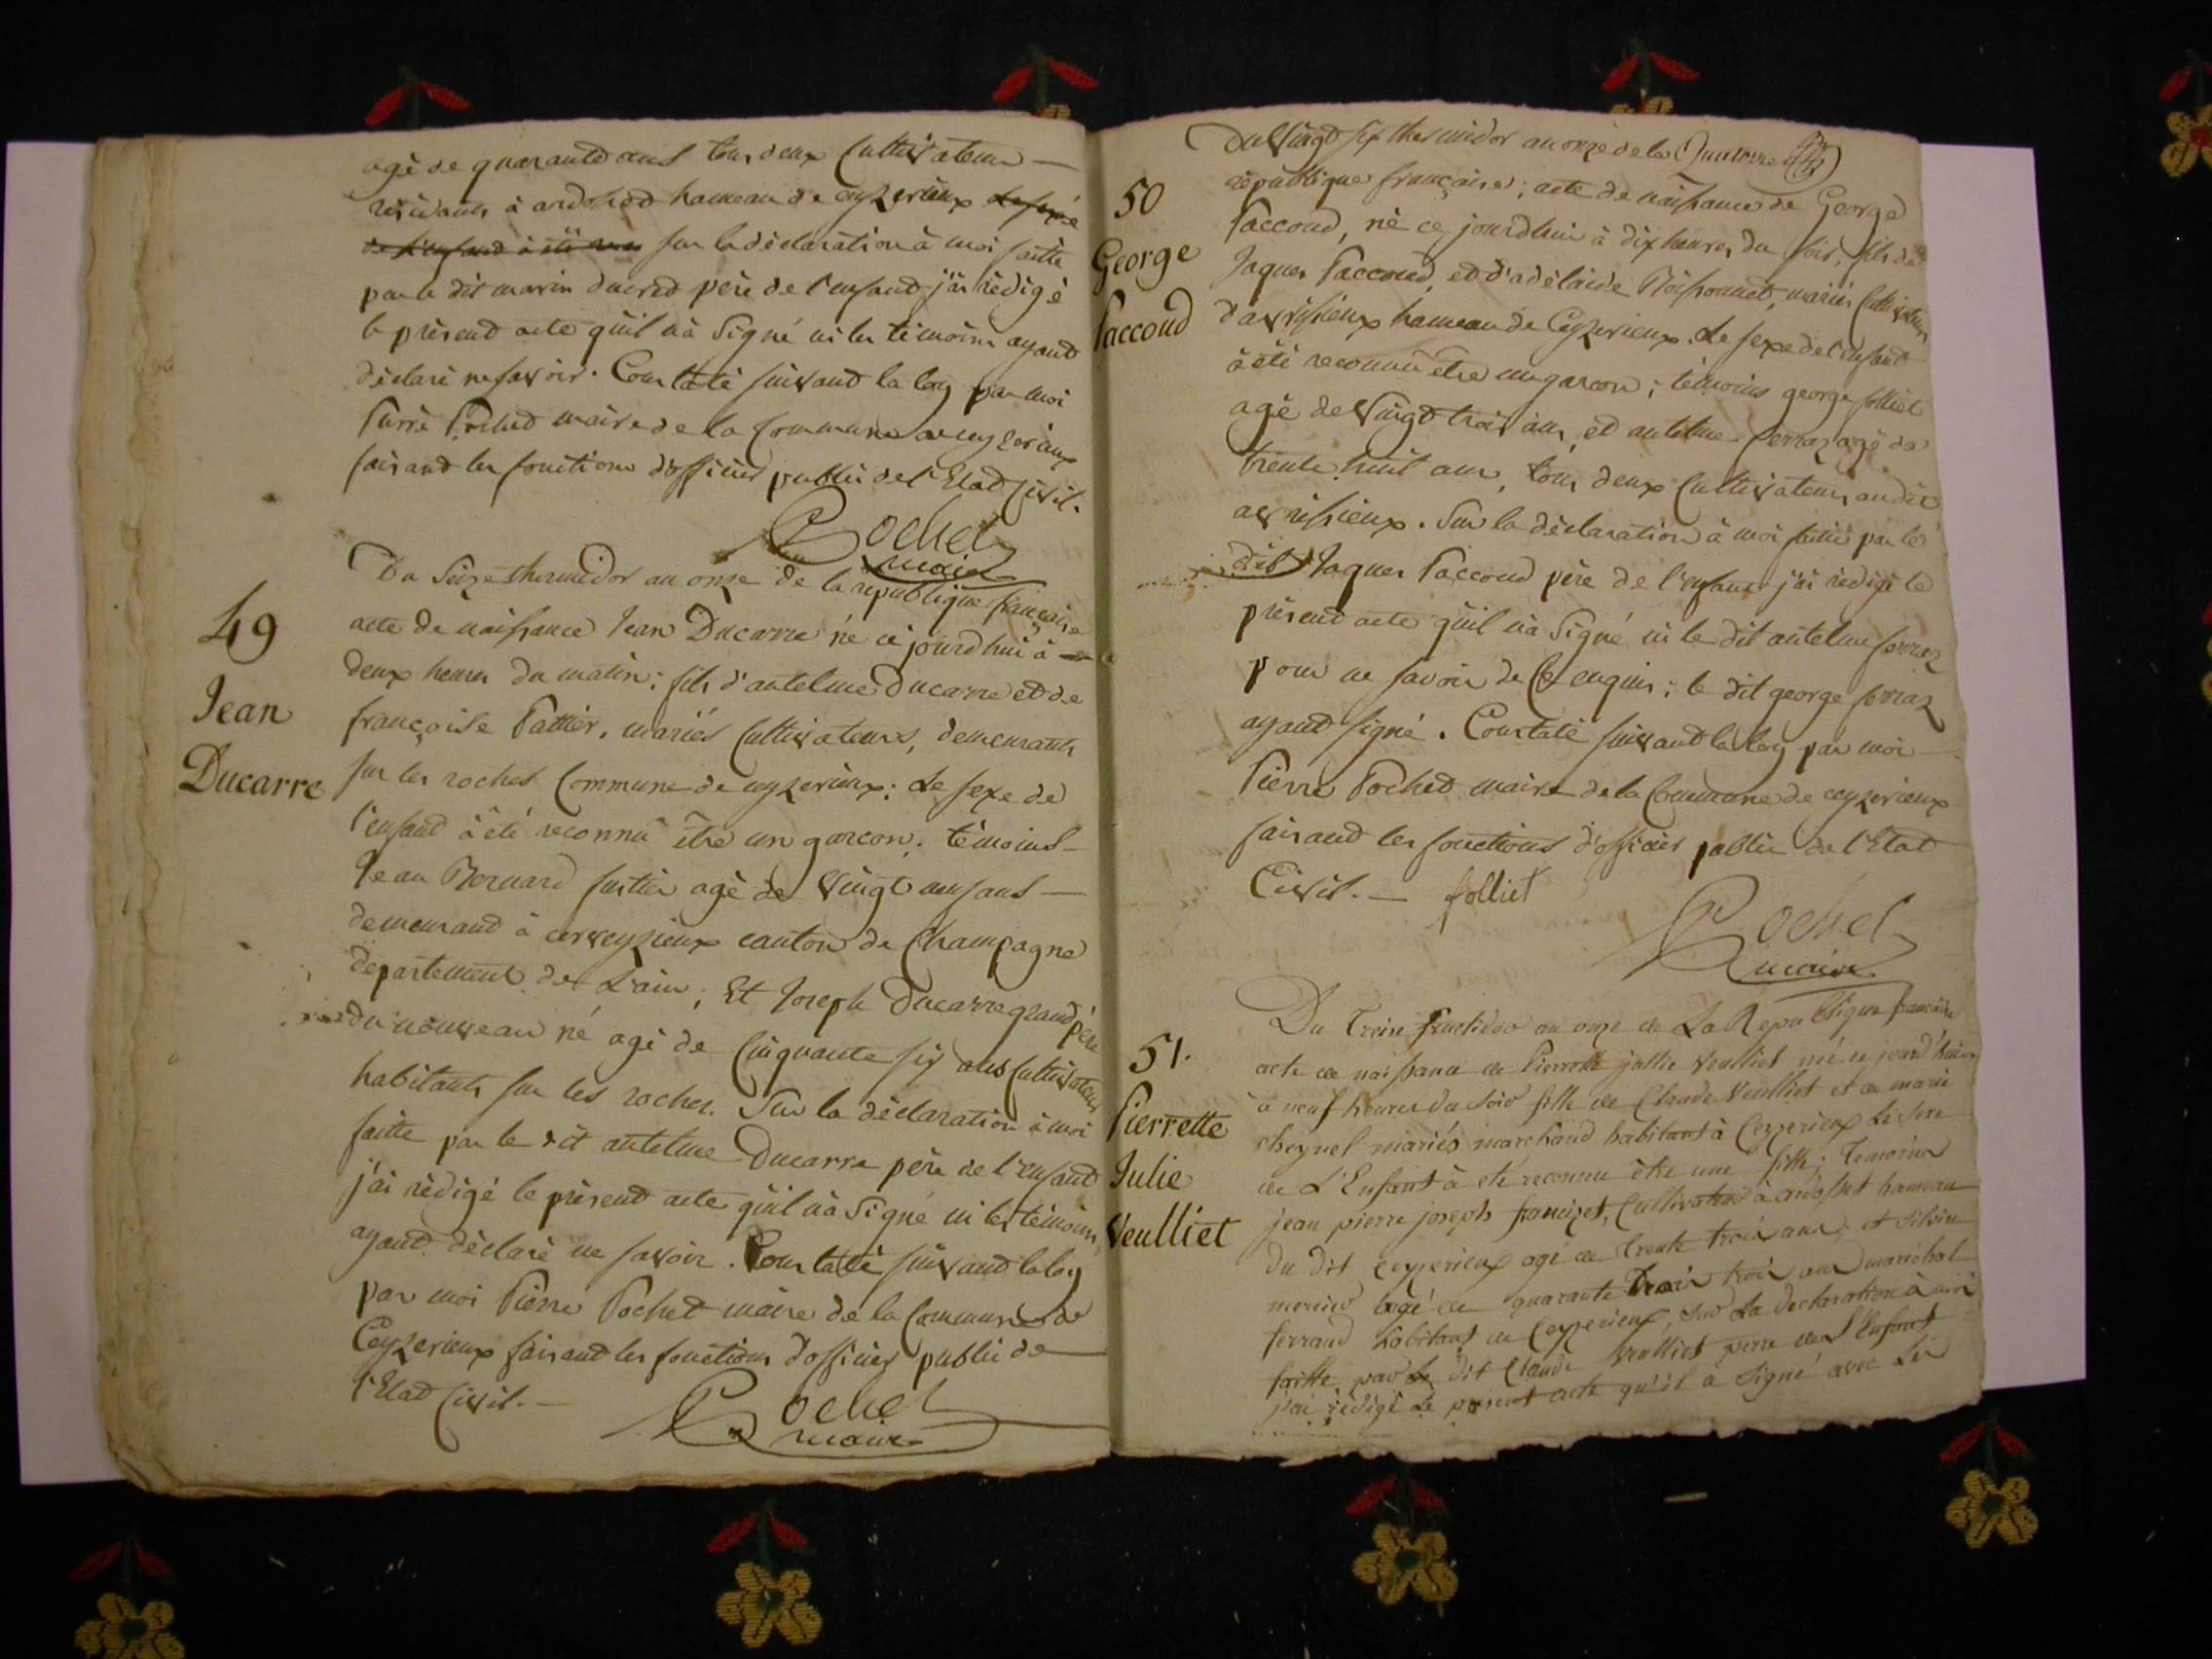 agé de quarante ans tous deux Cultivateurs
résidants à ardosset hameau de ceyzerieux Le sexe
de l'enfant à été sur la déclaration à moi faitte
par le dit marin ducret père de l'enfant j'ai rédigé
le présent acte qu'il n'à Signé ni les témoins ayant
déclaré ne savoir. Constaté suivant la loy par moi
Pierre Pochet maire de la Commune de ceyzerieux
faisant les fonctions d'officier public de l'Etat Civil.
Pochet
maire
49
Jean
Ducarre
Du Seize thermidor an onze de la république française
acte de naissance Jean Ducarre né ce jourd'hui à
deux heures du matin; fils d'antelme Ducarre et de
françoise Pattier, mariés Cultivateurs, demeurants
sur les roches Commune de ceyzerieux; Le sexe de
l'enfant à été reconnu être un garcon; témoins
Jean Bernard sustier agé de Vingt neuf ans
demeurand à cerveyzieux canton de Champagne
departement de L'ain; Et Joseph Ducarre grand père
du nouveau né agé de Cinquante six ans Cultivateur
habitants sur les roches. Sur la déclaration à moi
faitte par le dit antelme Ducarre père de l'enfant
j'ai rédigé le présent acte qu'il n'à Signé ni les témoins
ayant déclaré ne savoir. Constaté suivant la loy
par moi Pierre Pochet maire de la Commune de
Ceyzerieux faisant les fonctions d'officier public de
l'Etat Civil.
Pochet
maire
50
George
Paccoud
Du Vingt six thermidor an onze de la
république française; acte de naissance de George
Paccoud, né ce jourd'hui à dix heures du soir, fils de
Jaques Paccoud, et d'adélaide Moissonnet, mariés Cultivateurs
d'avrissieux hameau de Ceyzerieux. Le sexe de l'enfant
à été reconnu être un garcon; témoins george folliet
agé de Vingt trois ans, et antelme ferraz agé de
trente huit ans, tous deux Cultivateurs au dit
avrissieux. Sur la déclaration à moi faitte par le
dit Jaques Paccoud père de l'enfant j'ai rédigé le
présent acte qu'il n'à Signé ni le dit antelme ferraz
pour ne savoir de ce enquis; le dit george ferraz
ayant signé. Constaté suivant la loy par moi
Pierre Pochet maire de la Commune de ceyzerieux
faisant les fonctions d'officier public de l'Etat
Civil. folliet
Pochet
maire
51.
Pierrette
Julie
Veulliet
Du Treize fructidor an onze de La Republique francaise
acte de naissance de Pierrette jullie Veulliet née ce jourd'huis
à neuf heures du Soir fille de Claude Veulliet et de marie
cheynel mariés marchand habitant à Ceyzerieux Le sexe
de L'Enfant à eté reconnu être une fille; Temoins
jean pierre joseph francizet, Cultivateur à ardosset hameau
du dit ceyzerieux agé de trente trois ans; et Silvin
mercier agé de quarante trois ans marechal
ferrand habitant de Ceyzerieux, Sur La declaration à moi
faitte par Le dit Claude Veulliet perre de L'Enfant
j'ai rédigé Le present acte qu'il à Signé avec Les